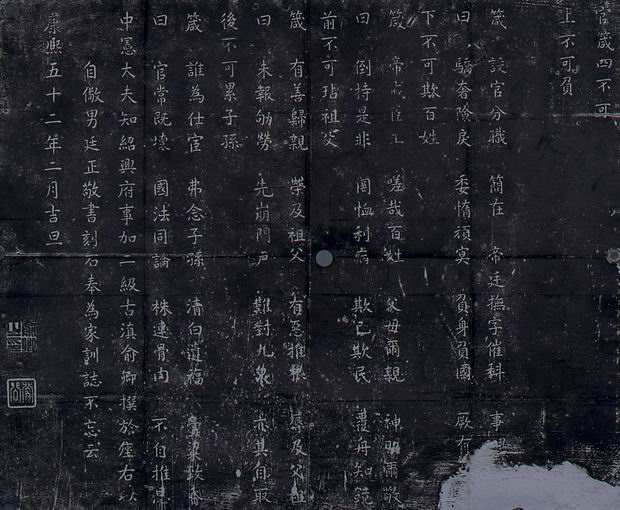 官箴四不可
上不可負
箴 設官分職 簡在 帝廷撫字催科 事
曰 驕奢險戾 委惰頑冥 負身負國 厥有
下不可欺百姓
箴 帝 臣工 嗟哉百姓 父母爾親 神明爾敬
曰 倒持是非 罔恤利病 欺己欺民 覆舟知鏡
前不可玷祖父
箴 有善歸親 榮及祖父 有惡推 辱及父祖
曰 未報劬勞 先崩門戶 難對九泉 亦其自取
後不可累子孫
箴 誰為仕宦 弗念子孫 清白遺福 致
曰 官常既壞 國法同論 株連骨肉 不自推
中憲大夫知紹興府事加二級古滇俞卿撰於座右以
自儆男廷正敬書刻石奉為家訓誌不忘云
康熙五十二年二月吉旦